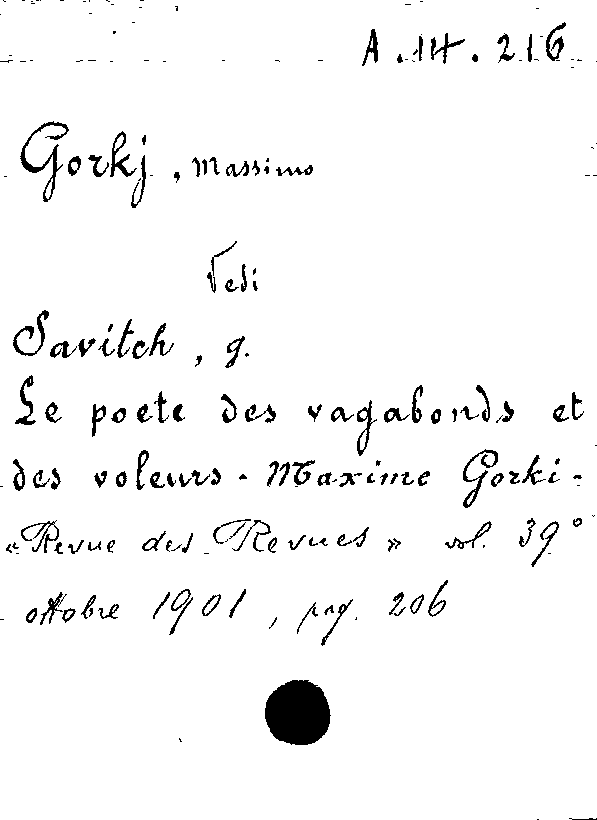 A.14.216
Gorkj, Massimo
Vedi
Savitch, g.
Le poete des vagabonds et
des voleurs - Maxime Gorki -
« Revue des Revues » vol. 39°
ottobre 1901, pag. 206